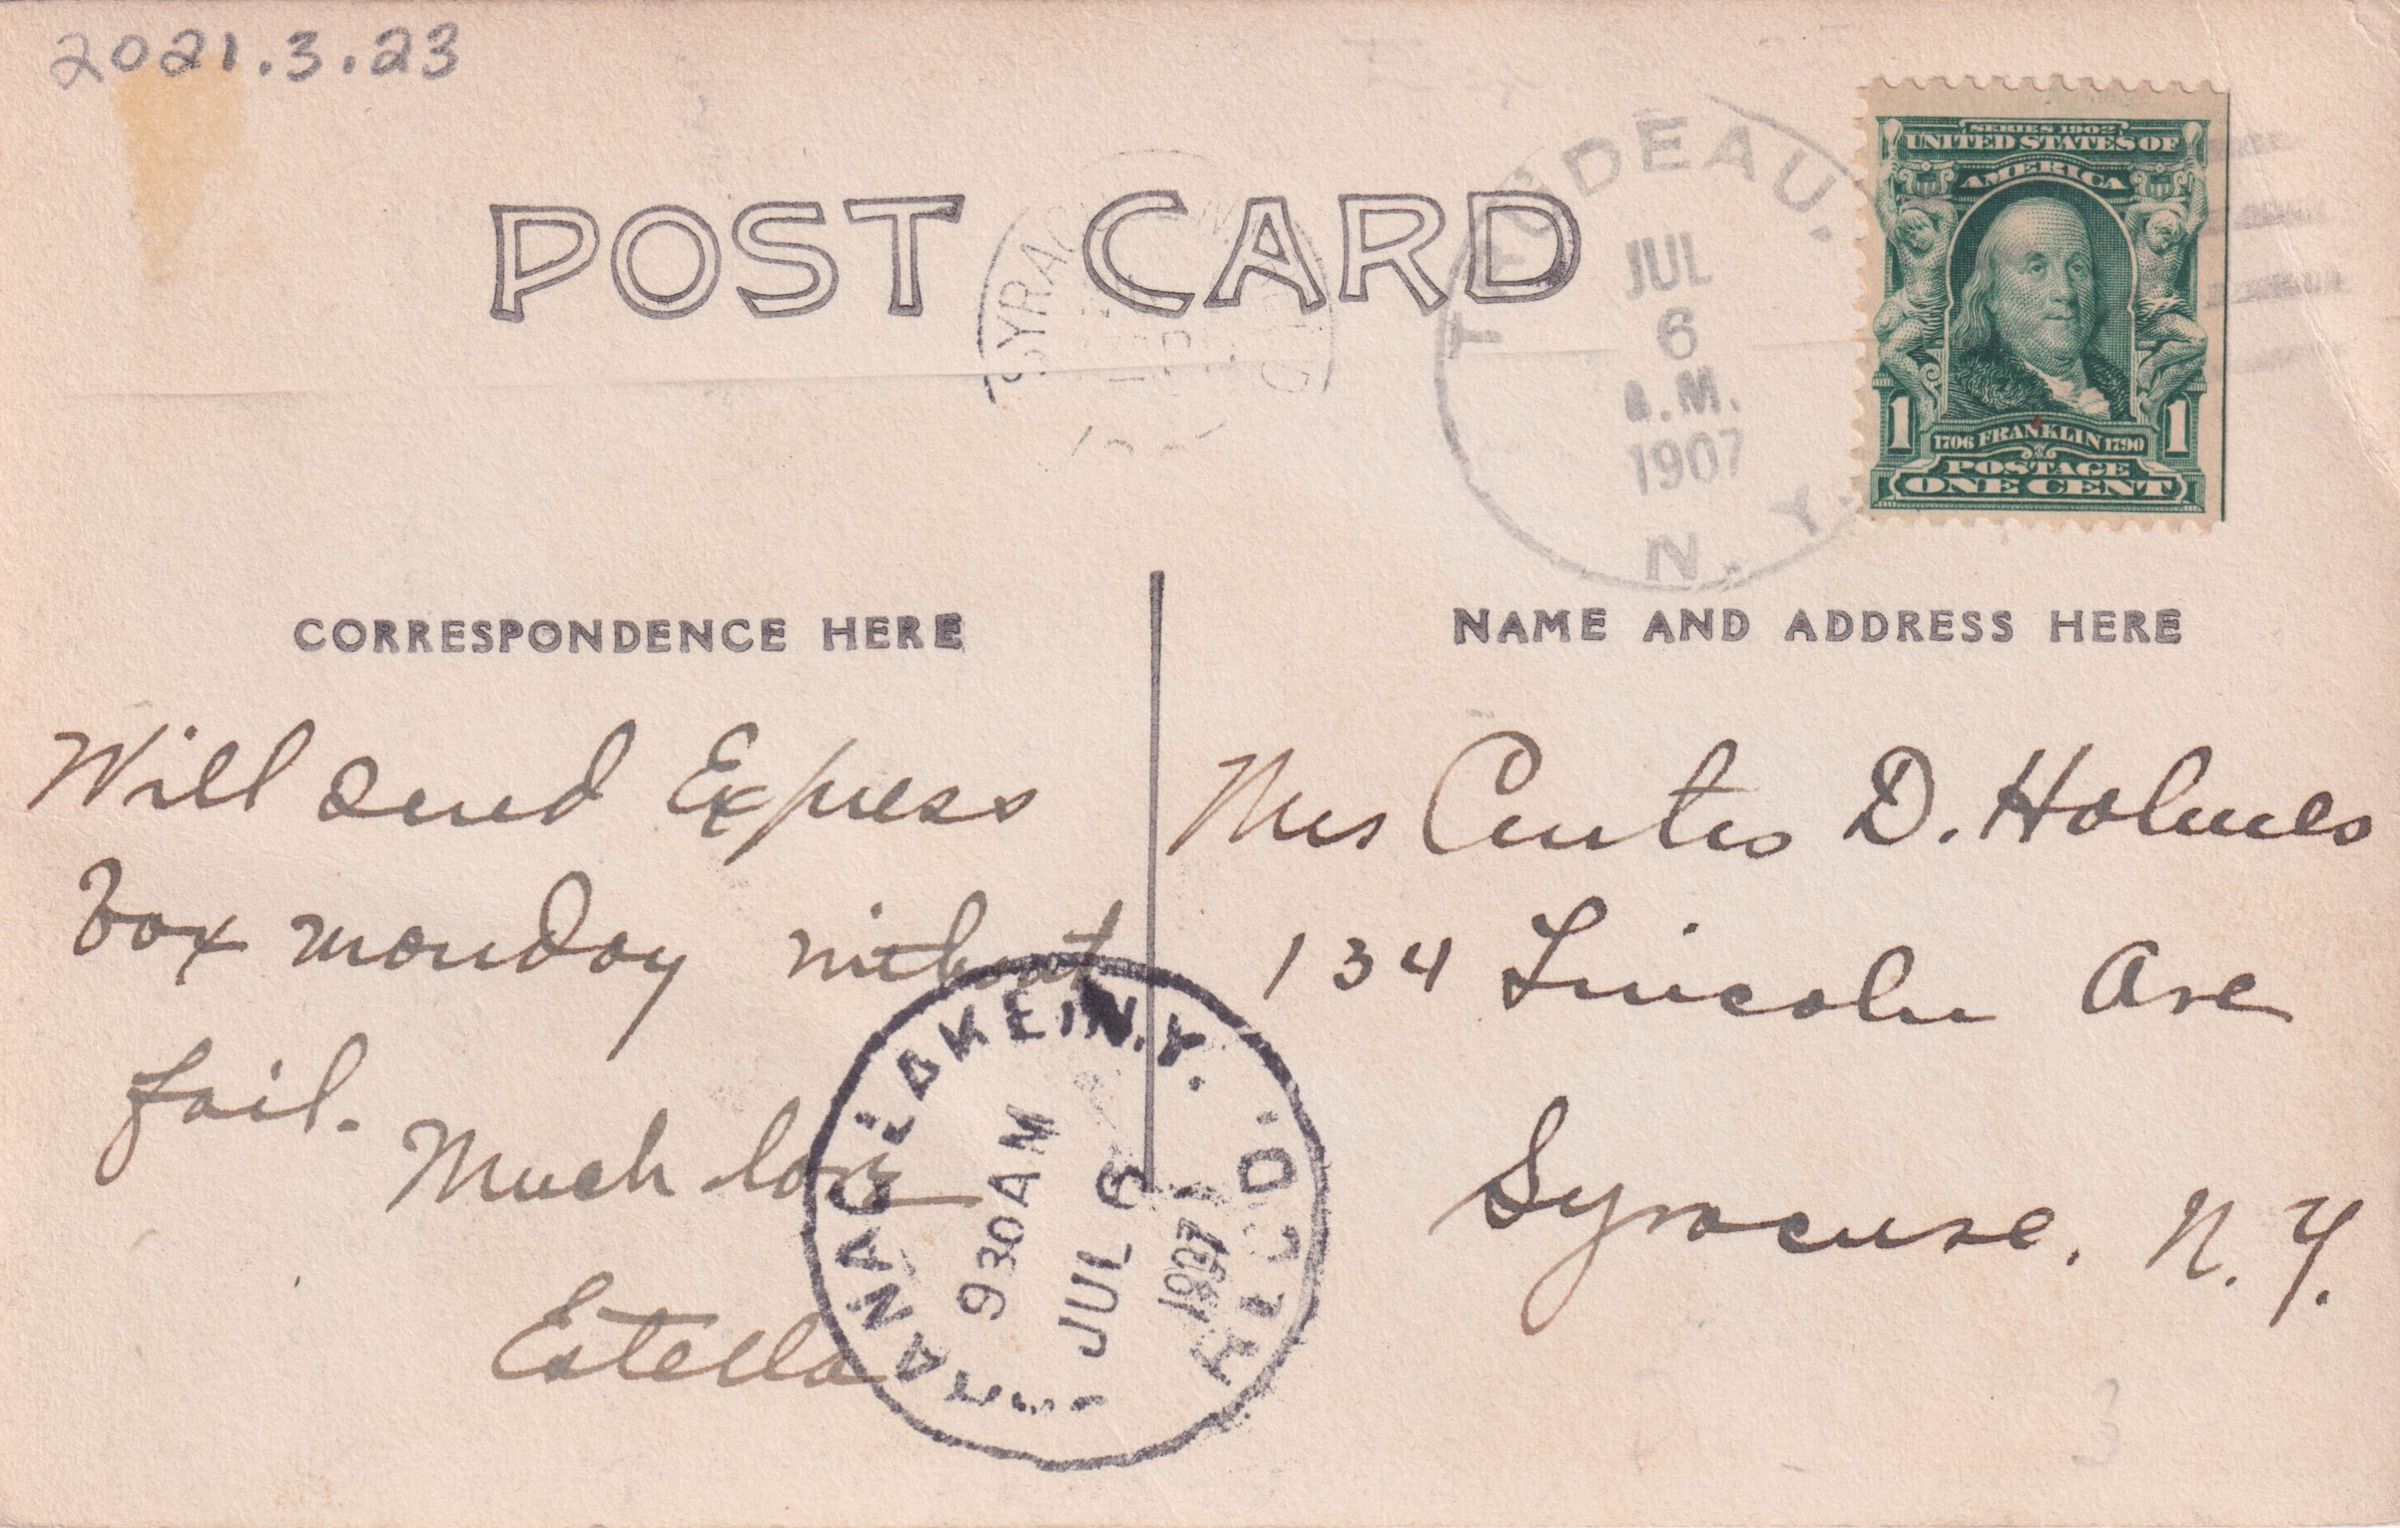 2021.3.23
POST CARD
SYRAC
TRUDEAU.
JUL
6
A.M.
1907
N. Y.
SERIES 1902
UNITED STATES OF
AMERICA
1 1
1706 FRANKLIN 1790
POSTAGE
ONE CENT
CORRESPONDENCE HERE
Will send Express
box monday without
fail.
Much love
Estella
NAME AND ADDRESS HERE
Mrs Curtis D. Holmes
134 Lincoln Ave
Syracuse. N. Y.
RANAC LAKE, N.Y.
930 AM
JUL 6
1907
REC'D.
3